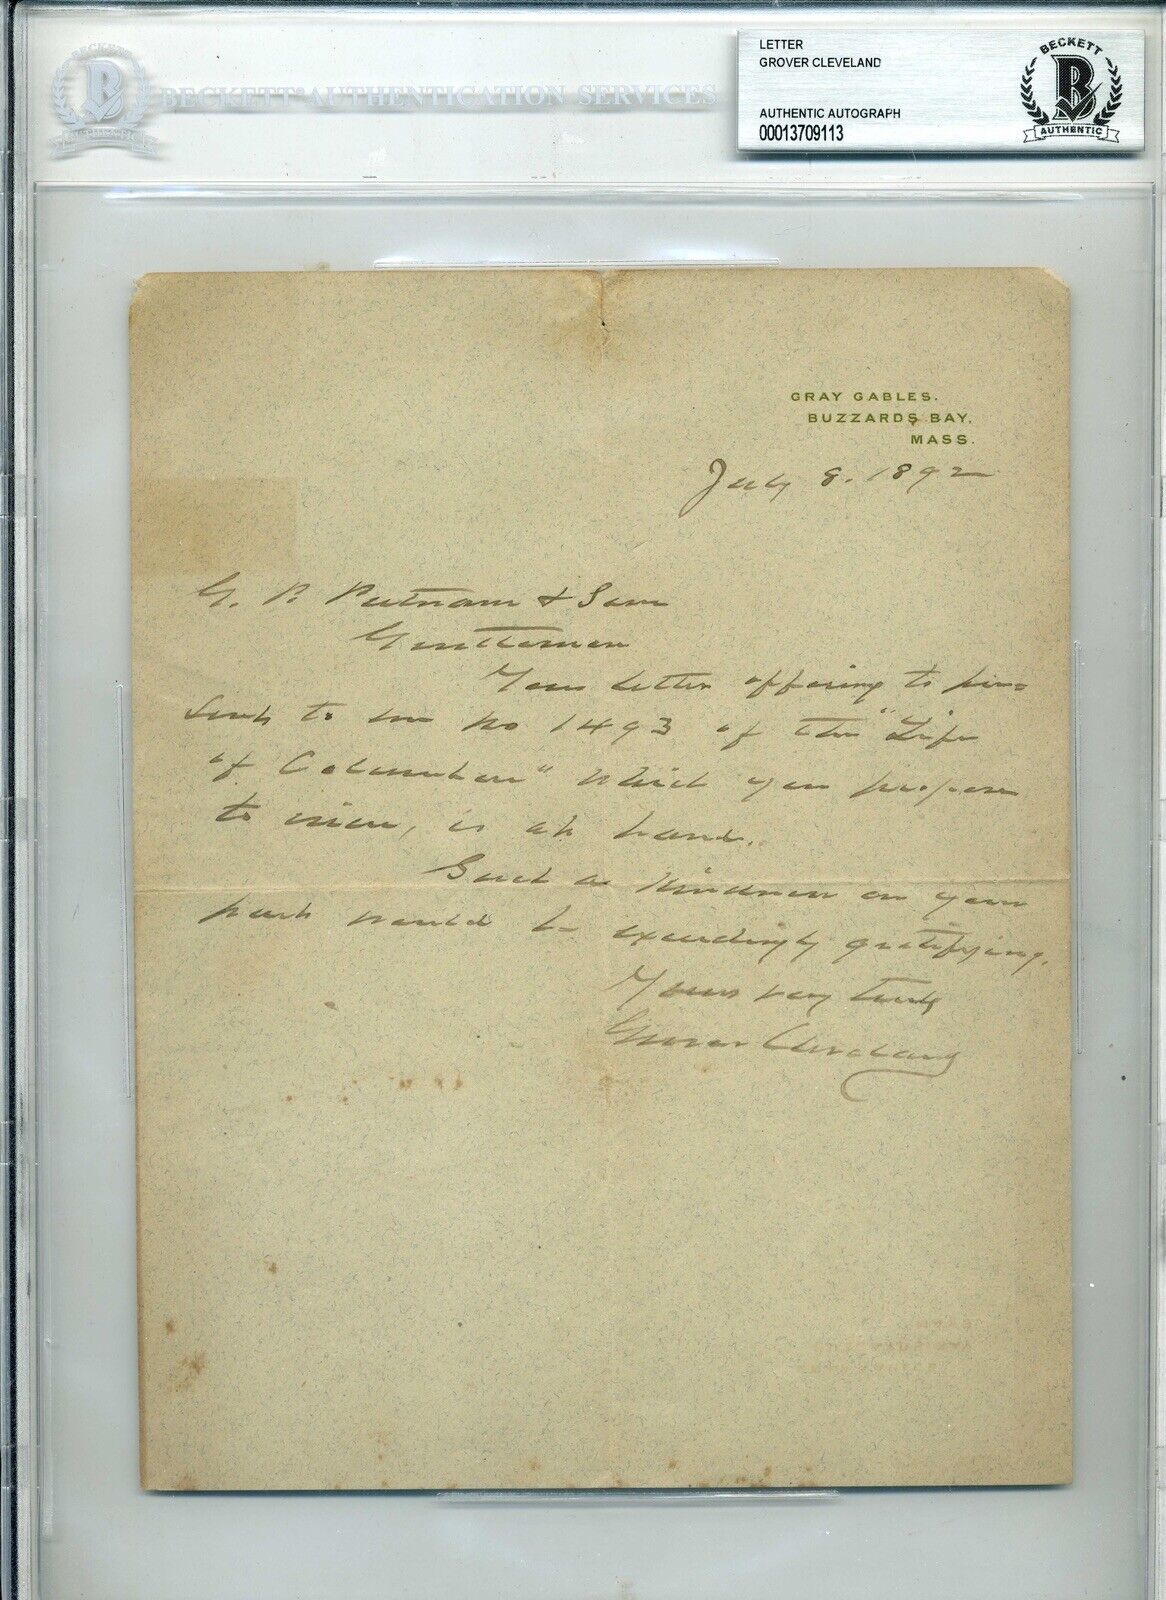 BECKETT
B
AUTHENTIC
BECKETT AUTHENTICATION SERVICES
LETTER
GROVER CLEVELAND
AUTHENTIC AUTOGRAPH
00013709113
BECKETT
B
AUTHENTIC
GRAY GABLES.
BUZZARDS BAY,
MASS.
July 8. 1892
G. P. Putnam & Sons
Gentlemen
Your letter offering to pre=
sent to me No 1493 of the "Life
of Columbus" which you propose
to issue, is at hand.
Such a kindness on your
part would be exceedingly gratifying.
Yours very truly
Grover Cleveland